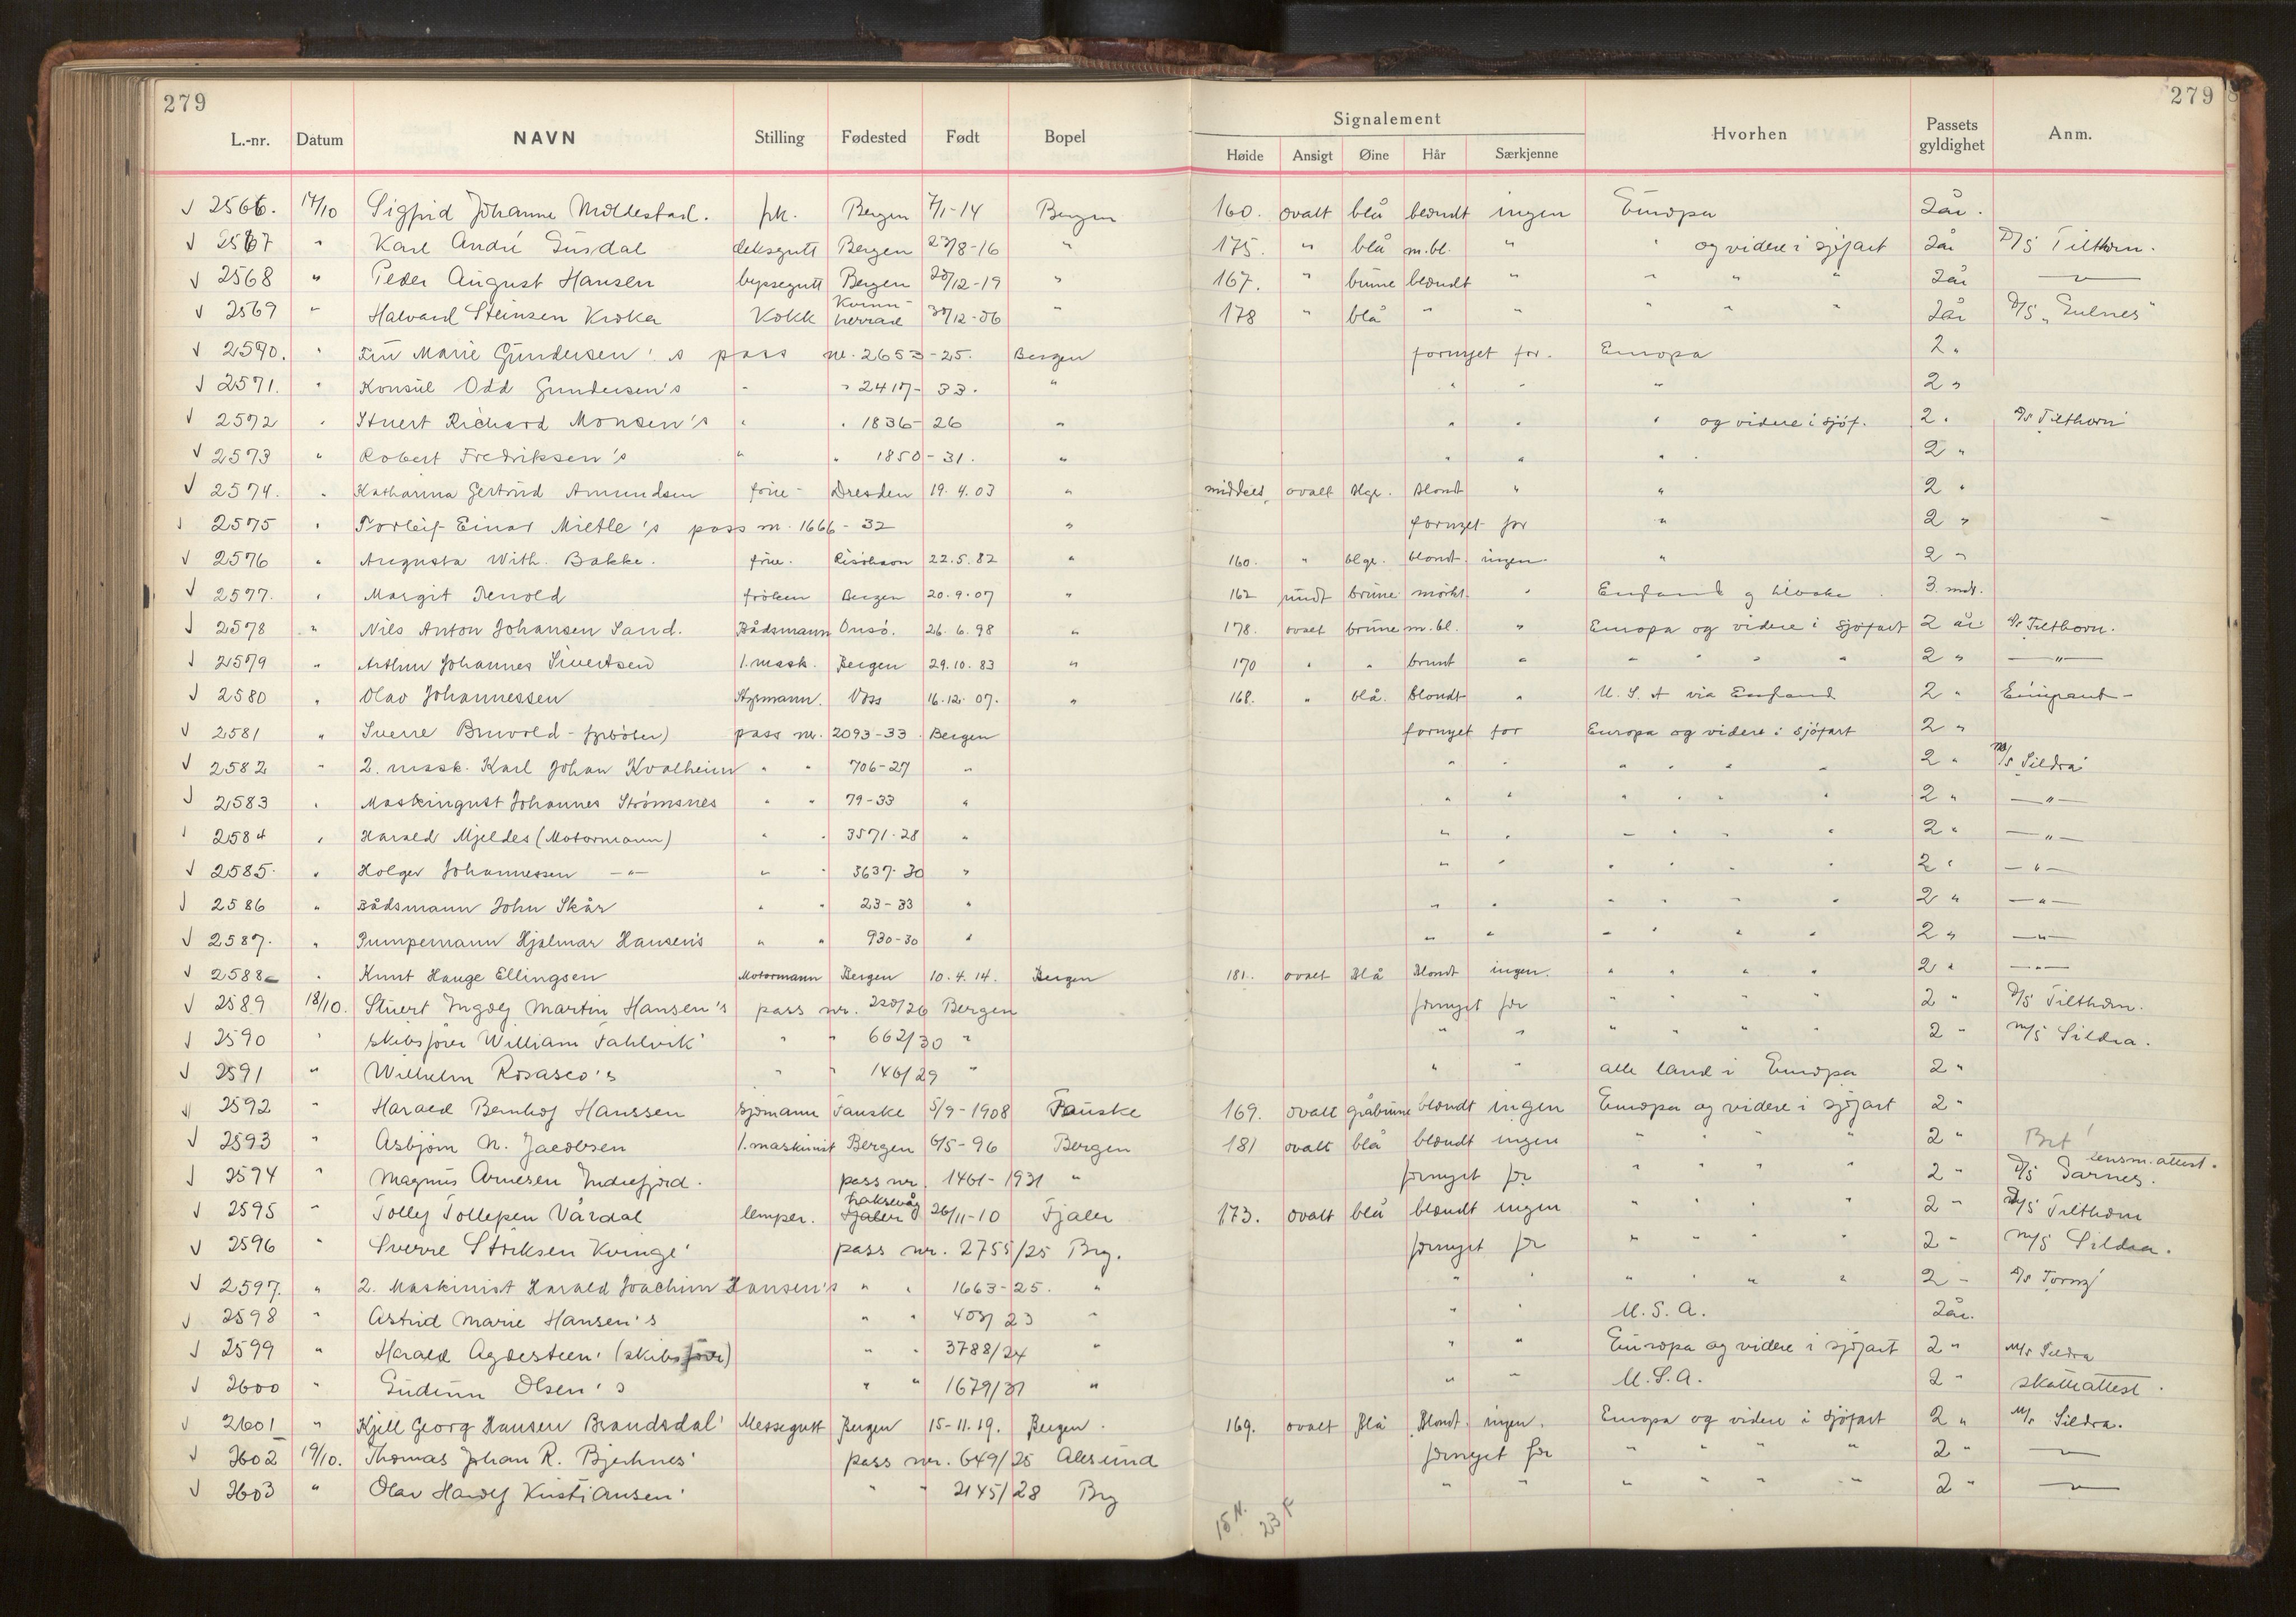 279 279
Signalement
L.-nr. Datum NAVN Stilling Fødested Født Bopel Høide Ansigt Øine Hår Særkjenne Hvorhen Passets gyldighet Anm.
√ 2566. 17/10 Sigfrid Johanne Moldestad. frk. Bergen 7/1-14 Bergen 160. ovalt blå blondt ingen Europa 2 år.
√ 2567 " Karl André Eusdal deksgutt Bergen 23/8-16 " 175. " blå m.bl. " " og videre i sjøfart 2 år D/S Tilthorn.
√ 2568 " Peder August Hansen byssegutt Bergen 20/12-19 " 167. " brune blondt " " " " 2 år —"—
√ 2569 " Halvard Steinsen Kroka Kokk Kvinnherrad 30/12-06 " 178 " blå " " " " " 2 år D/S „Eulnes"
√ 2590. " Fru Marie Gundersen's pass nr. 2653-25. Bergen fornyet for. Europa 2 "
√ 2571. " Konsul Odd Gundersen's " " 2417-33. " " " " 2 "
√ 2572 " Stuert Richard Monsen's " " 1836-26 " " " " og videre i sjøf. 2 " D/S Tilthorn
√ 2573 " Robert Fredriksen's " " 1850-31. " " " " 2 "
√ 2574. " Katharina Gertrud Amundsen frue- Dresden 19.4.03 " middels, ovalt blgr. blond " " 2 "
√ 2575 " Torleif Einar Mietle's pass nr. 1666-32 " fornyet for " 2 "
√ 2576 " Augusta With. Bakke. frue. Risöhavn 22.5.82 " 160. " blgr. blondt. ingen. " 2 "
√ 2577. " Margit Tenold fröken Bergen 20.9.07 " 162 rundt brune mörkt " England og tilbake 3. mdr.
√ 2578 " Nils Anton Johansen Sand. Bådsmann Onsö. 26.6.98 " 178. ovalt brune m.bl. " Europa og videre i sjöfart 2 år D/S Tilthorn.
√ 2579 " Arthur Johannes Sivertsen 1. mask. Bergen 29.10.83 " 170 " " brunt " " " " " 2 " —"—
√ 2580 " Olav Johannessen Styrmann. Voss 16.12.07. " 168. " blå. blondt " U.S.A via England 2 " Emigrant-
√ 2581 " Sverre Bruvold - fyrböter) pass nr. 2093-33 Bergen fornyet for Europa og videre i sjöfart 2 "
√ 2582 " 2. mask. Karl Johan Kvalheim " " 706-27 " " " " " " " 2 " M/S Sildra
√ 2583 " Maskingust Johannes Strömsnes " " 79-33 " " " " " " " 2 " —"—
√ 2584 " Harald Mjeldes (Motormann) " " 3571-28 " " " " " " " 2 " —"—
√ 2585. " Holger Johannessen —"— " " 3637-30 " " " " " " " 2 " —"—
√ 2586 " Bådsmann John Skår " " 23-33 " " " " " " " 2 " —"—
√ 2587. " Pumpemann Hjalmar Hansen's " " 930-30 " " " " " " " 2 " —"—
√ 2588 " Knut Hauge Ellingsen Motormann Bergen 10.4.14. Bergen 181. ovalt Blå Blondt ingen. " " " " 2 " —"—
√ 2589 18/10. Stuert Ingolf Martin Hansen's pass nr. 220/26 Bergen fornyet for " " " " 2 " D/S Tilthorn.
√ 2590 " skibsfører William Fahlvik' " " 662/30 " " " " " " " 2 " M/S Sildra.
√ 2591 " Wilhelm Rosasco's " " 146/29 " " " alle land i Europa 2 "
√ 2592 " Harald Bernhof Hanssen sjømann Fauske 5/9-1908 Fauske 169. ovalt gråbrune blondt ingen Europa og videre i sjøfart 2 "
√ 2593 " Asbjørn N. Jacobsen 1. maskinist Bergen 6/5-96 Bergen 181 ovalt blå blondt ingen " " " " 2 " Brt!
√ 2594 " Magnus Arnesen Indrefjord. pass nr. 1461-1931 " fornyet for " " " " 2 " lensm. attest. D/S Garnes.
√ 2595 " Tollef Tollefsen Vårdal lemper. Laksevåg Fjaler 26/11-10 Fjaler 173. ovalt blå blondt ingen " " " " 2 " D/S Tilthorn
√ 2596 " Sverre Storksen Kvinge' pass nr. 2755/25 Brg. fornyet for " " " " 2 " M/S Sildra.
√ 2597. " 2. Maskinist Harald Joachim Hansen's " " 1663-25. " " " " " " " 2 " D/S Torny
√ 2598 " Astrid Marie Hansen's " " 403/23 " " " U.S.A. 2 år.
√ 2599 " Harald Agdesteen' (skibsfører) " " 3788/24 " " " Europa og videre i sjøfart 2 " M/S Sildra
√ 2600 " Gudrun Olsen's " " 1679/31 " " " U.S.A. 2 " skatteattest.
√ 2601 " Kjell Georg Hansen Brandsdal' Messegutt Bergen 15-11.19. Bergen. 169. ovalt Blå Blondt. ingen. Europa og videre i sjöfart 2 " M/S Sildra.
√ 2602 19/10. Thomas Johan R. Bjerknes' pass nr. 649/25 Ålesund fornyet for " " " " 2 " —"—
√ 2603 " Olav Hardy Kristiansen' " " 2145/28 Brg " " " " " " 2 " —"—
15 N. 23 F